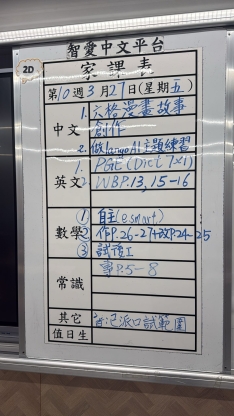 智愛中文平台
2D
家課表
第10週3月27日(星期五)
中文
1. 六格漫畫故事
創作
2. 做LangoAI主題練習
英文
1. PGE (Dict 7x1)
2. WBP.13,15-16
數學
① 自主(esmart)
② 作P.26-27+改P.24-25
③ 試後工
常識
專P.5-8
其它
值日生